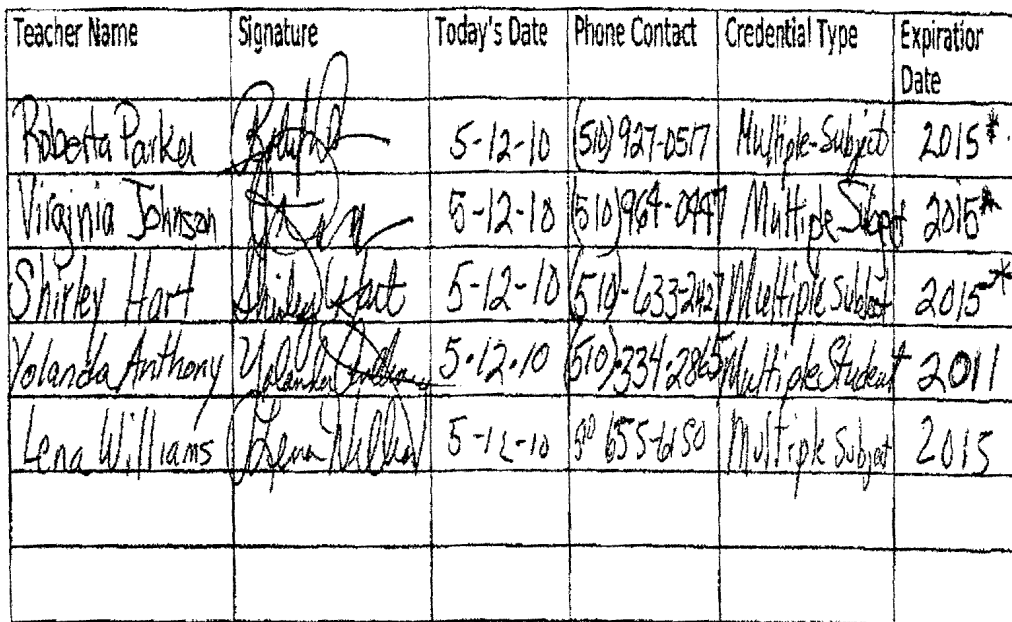 Teacher Name Signature Today's Date Phone Contact Credential Type Expiration
Date
Roberta Parker 5-12-10 (510) 927-0517 Multiple-Subject 2015*
Virginia Johnson 5-12-10 (510) 964-0447 Multiple-Subject 2015*
Shirley Hart Shirley Hart 5-12-10 (510)-633-2427 Multiple Subject 2015*
Yolanda Anthony Yolanda Anthony 5.12.10 (510).334.2865 Multiple Student 2011
Lena Williams Lena Williams 5-12-10 510 655-6150 Multiple Subject 2015